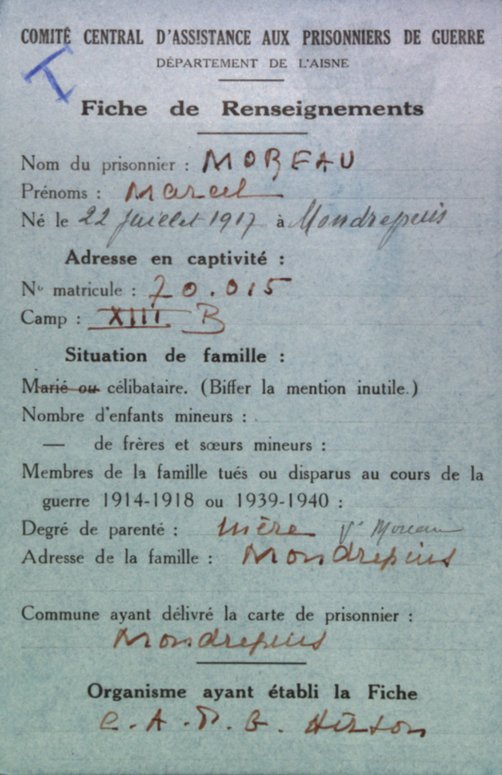 COMITÉ CENTRAL D'ASSISTANCE AUX PRISONNIERS DE GUERRE
DÉPARTEMENT DE L'AISNE
T
Fiche de Renseignements
Nom du prisonnier : MOREAU
Prénoms : Marcel
Né le 22 juillet 1917 à Mondrepuis
Adresse en captivité :
No matricule : 70.015
Camp : XIII B
Situation de famille :
Marié ou célibataire. (Biffer la mention inutile.)
Nombre d'enfants mineurs :
— de frères et sœurs mineurs :
Membres de la famille tués ou disparus au cours de la
guerre 1914-1918 ou 1939-1940 :
Degré de parenté : mère Moreau
Adresse de la famille : Mondrepuis
Commune ayant délivré la carte de prisonnier :
Mondrepuis
Organisme ayant établi la Fiche
C.A.P.G. Hirson